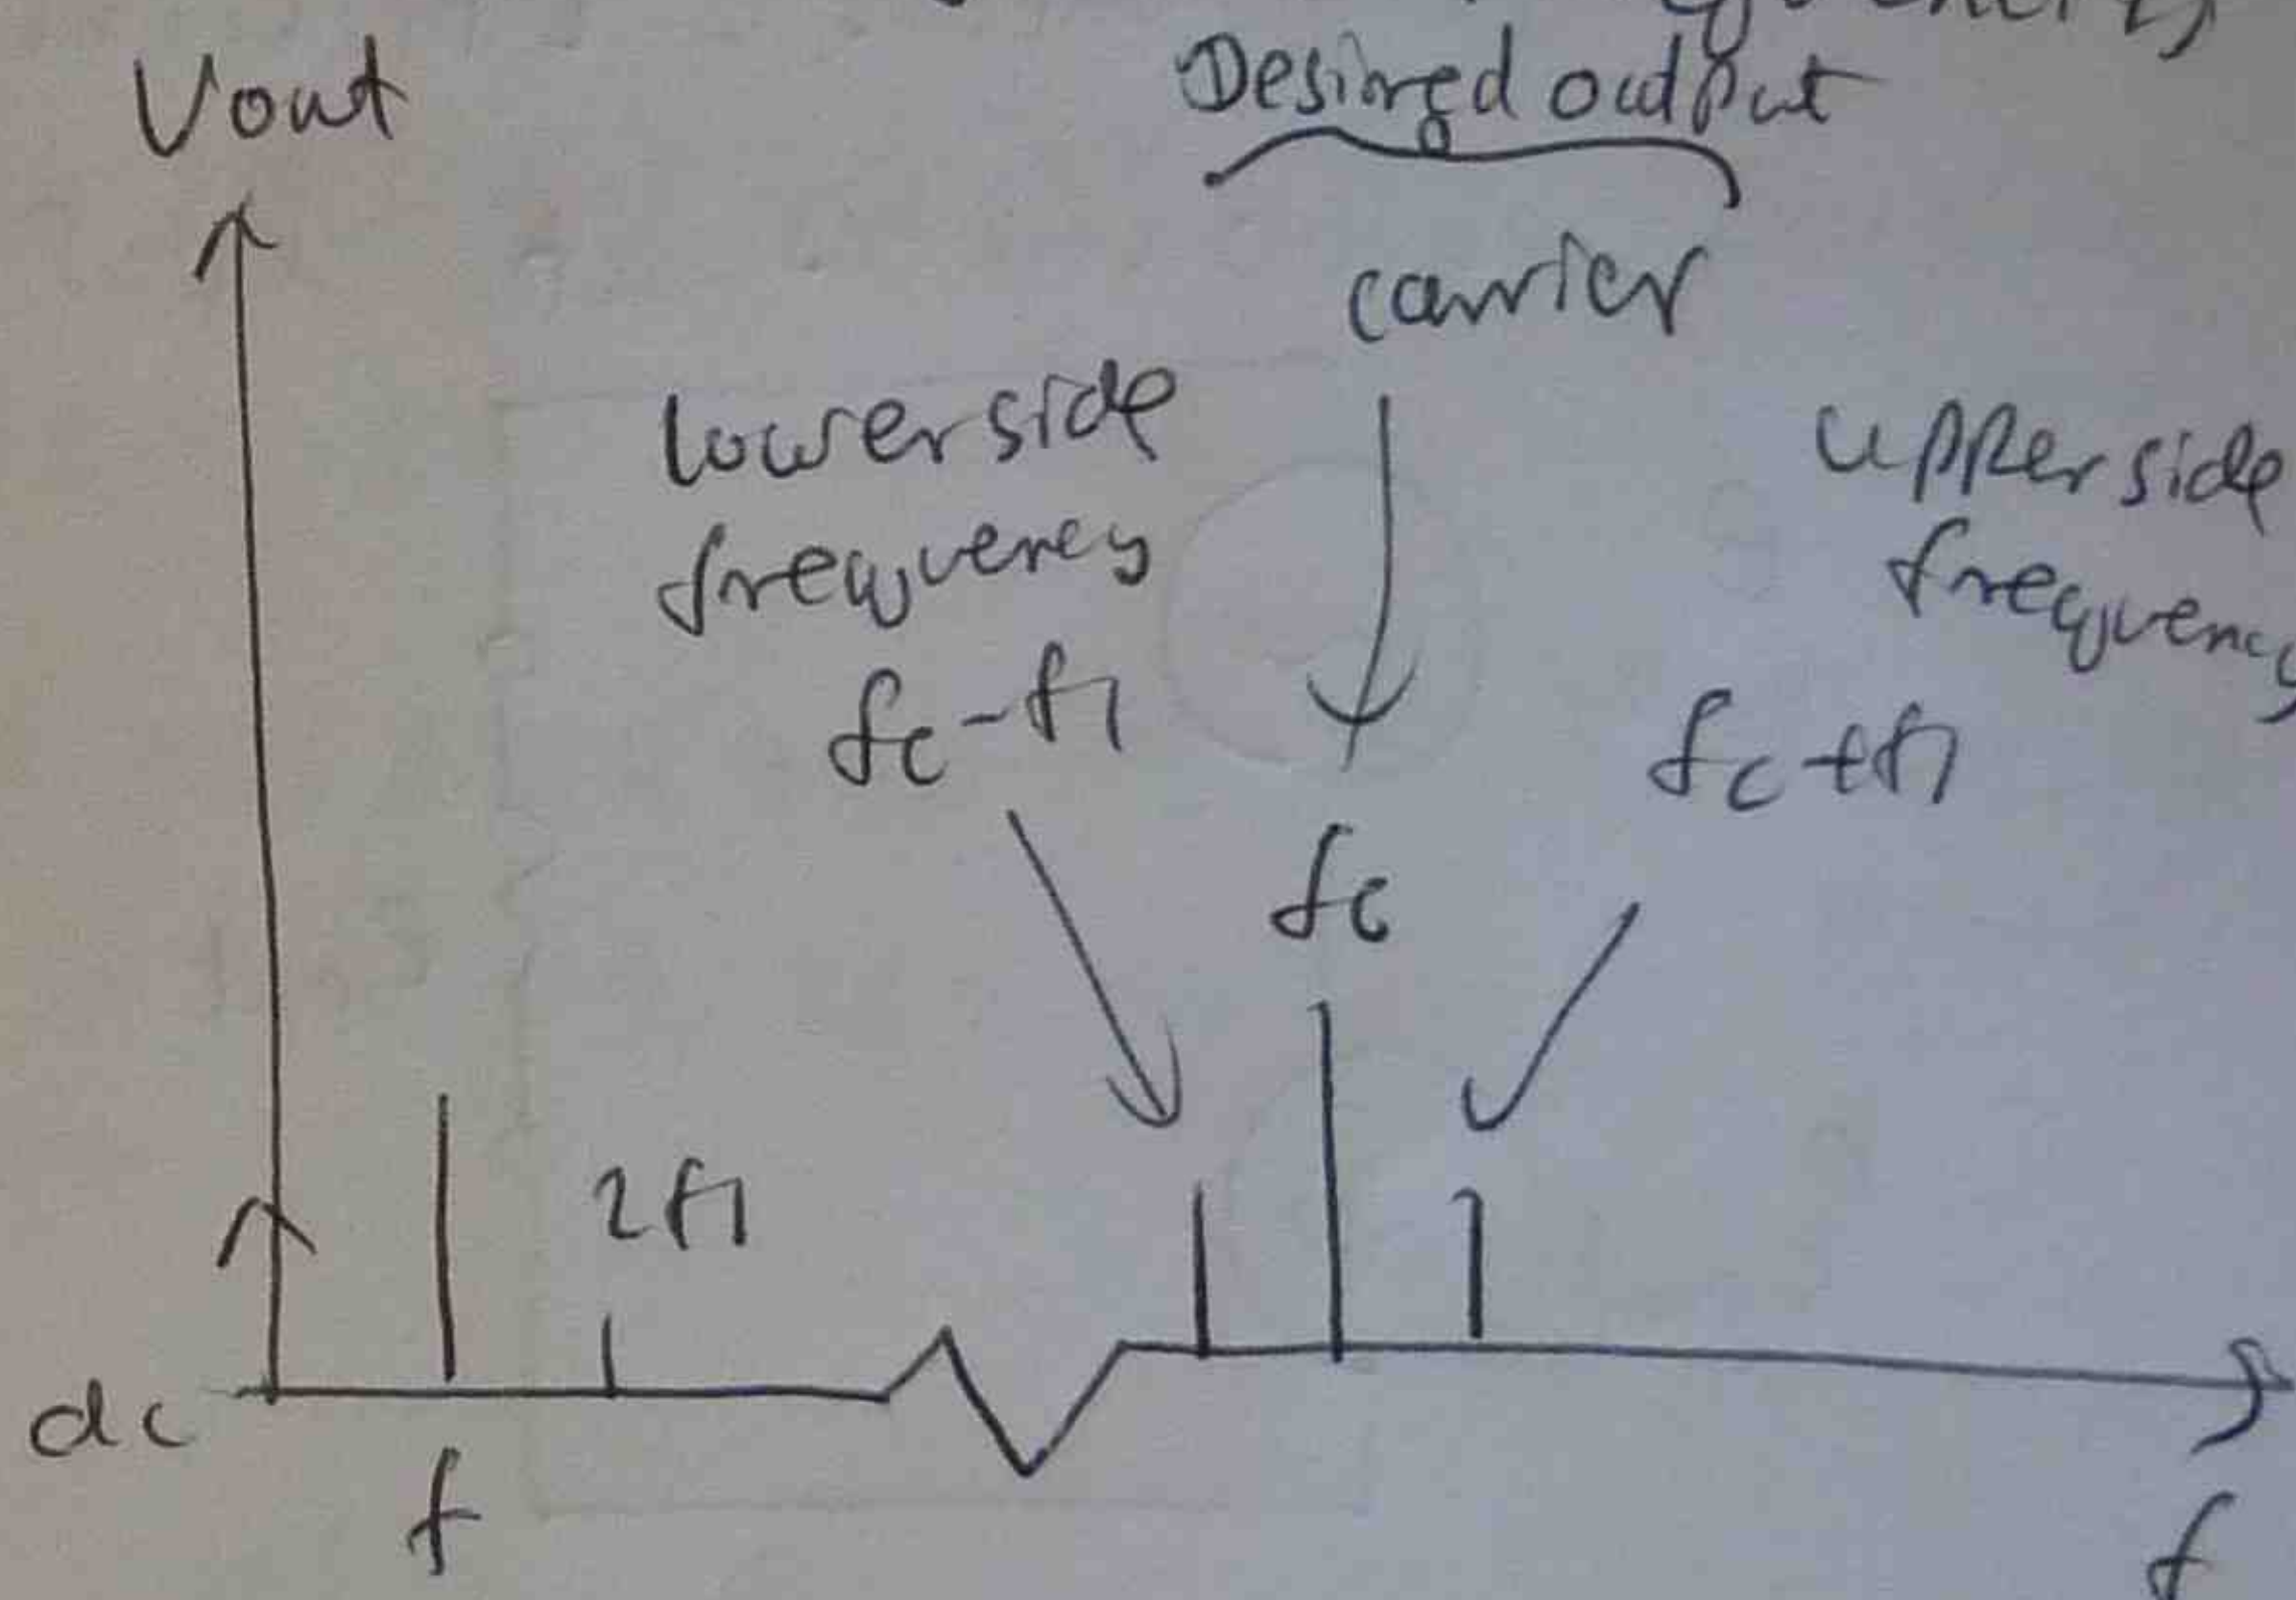 Vout
Desired output
carrier
lower side
frequency
upper side
frequency
fc-f1
fc+f1
fc
2f1
dc
f
f